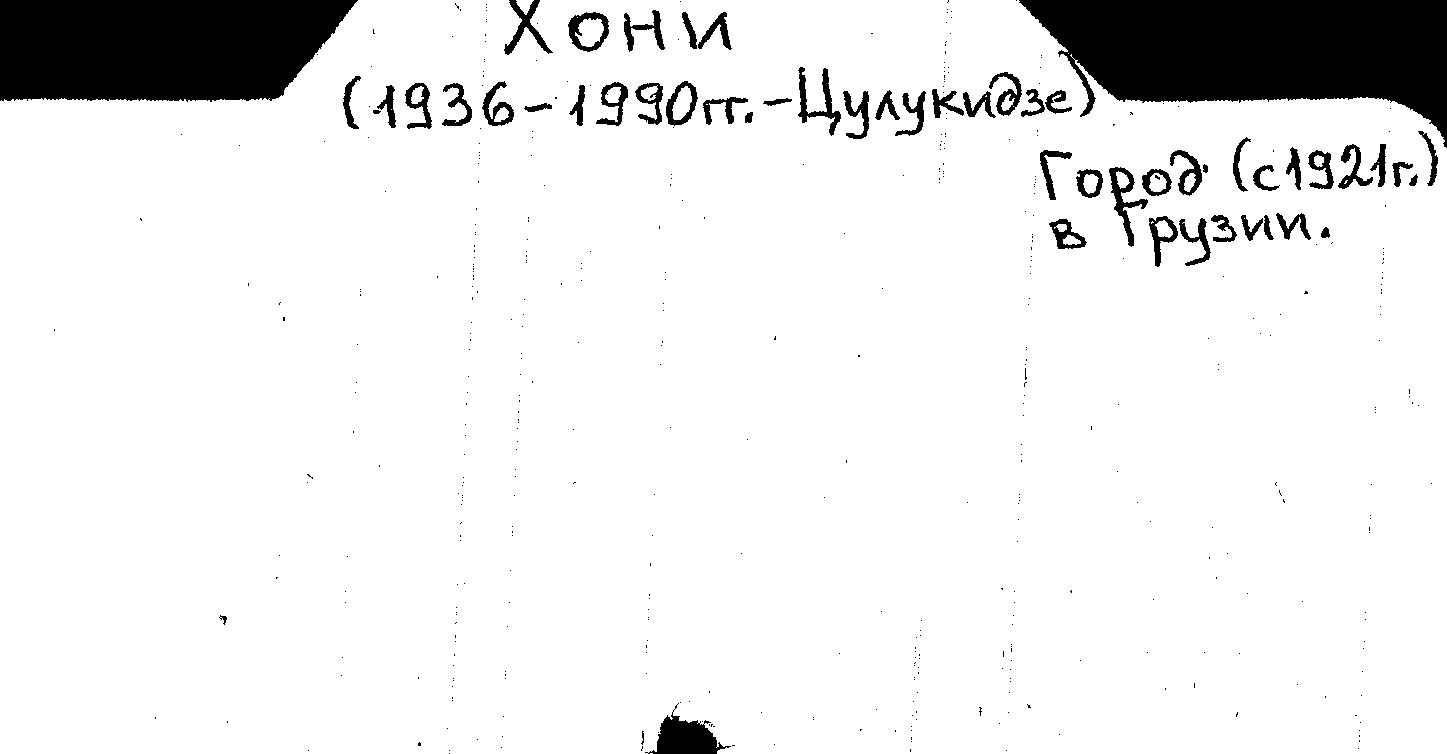 Хони
(1936-1990гг.-Цулукидзе)
Город (с1921г.)
в Грузии.